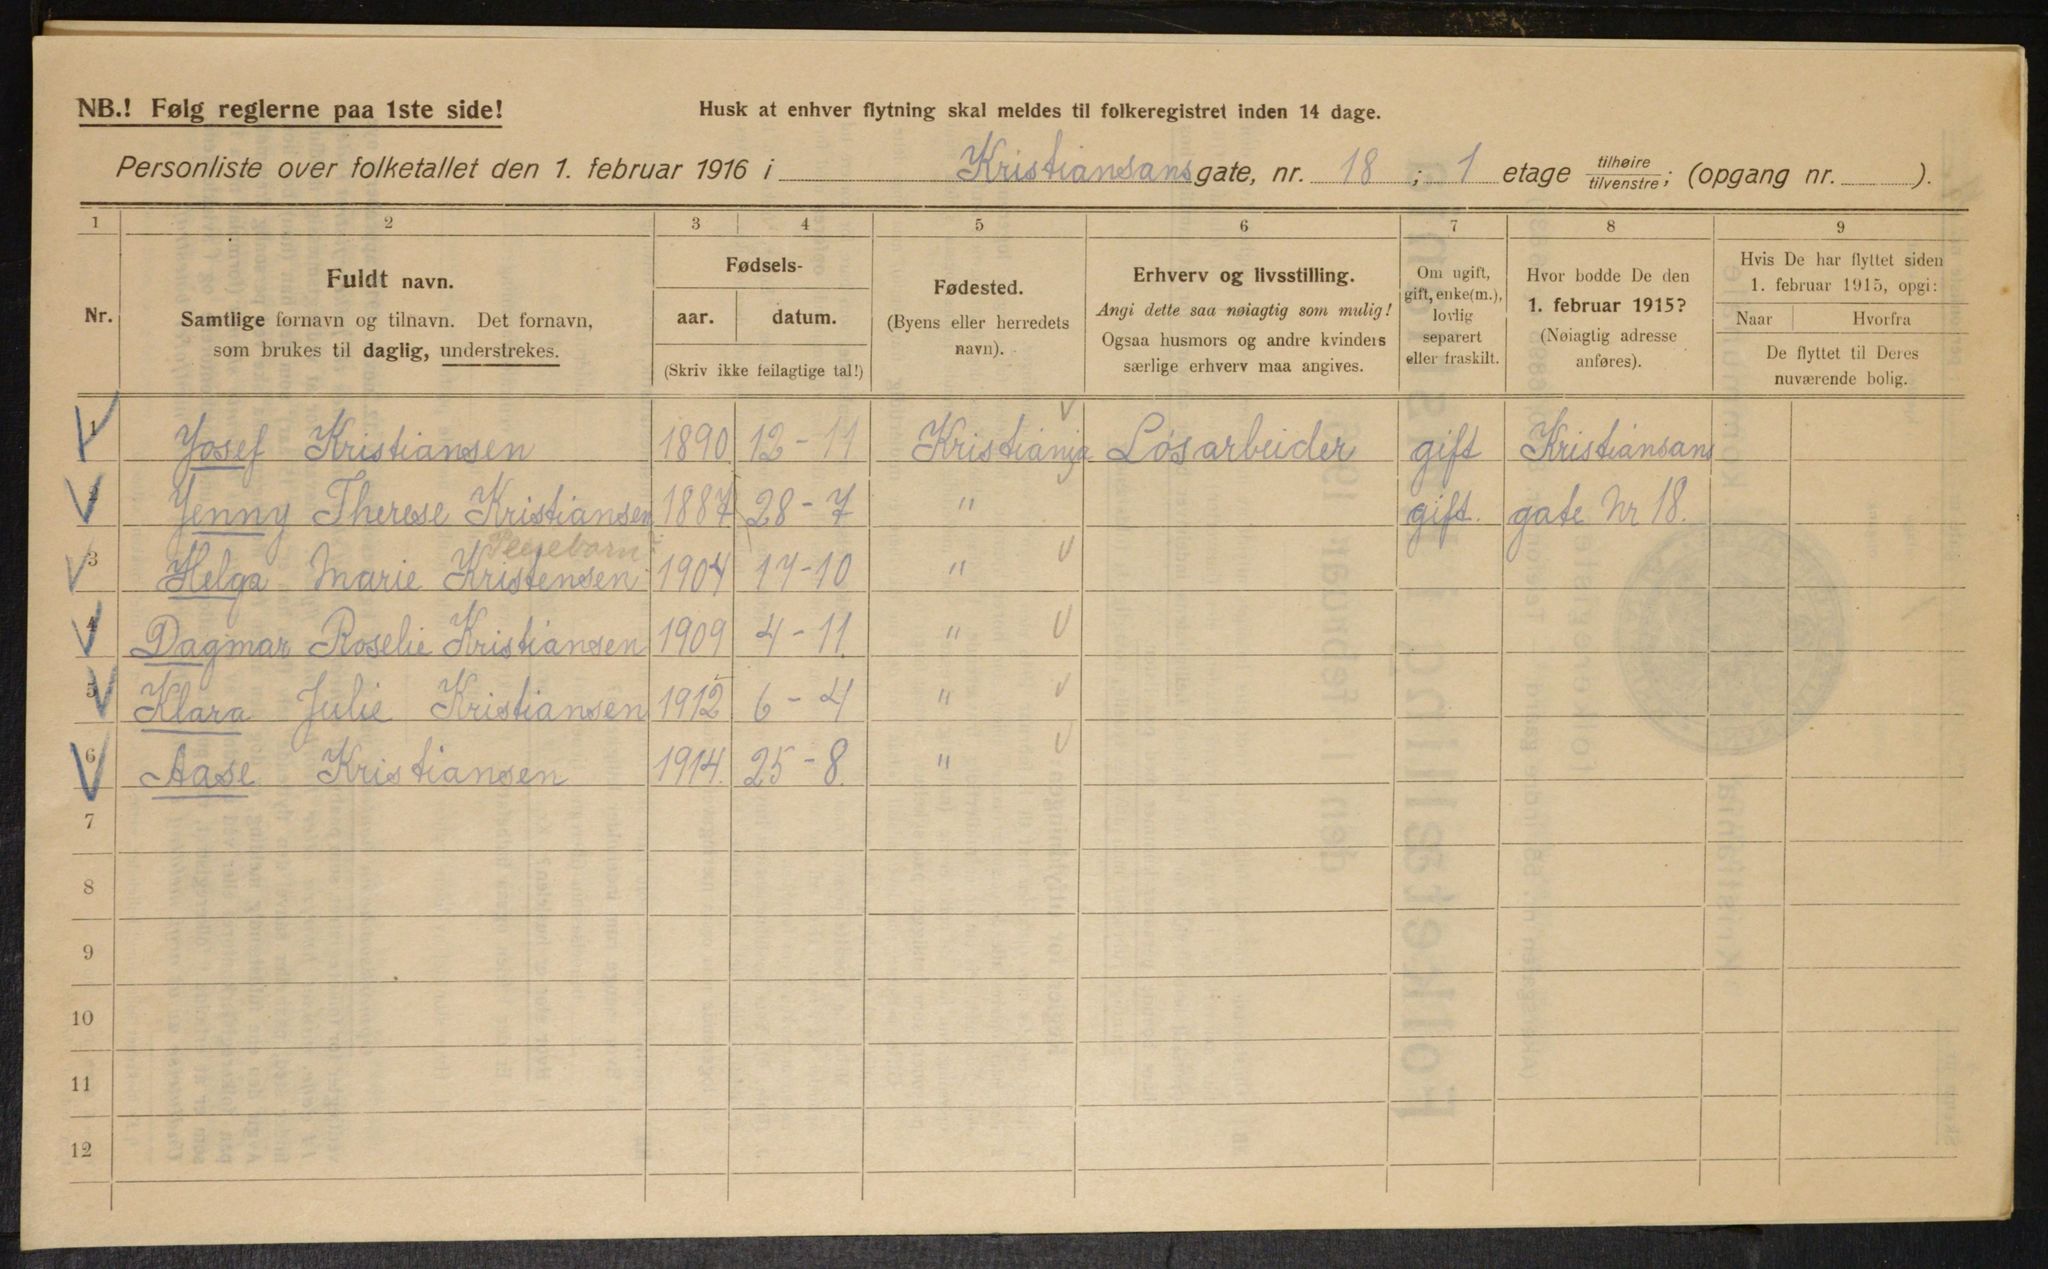 NB.! Følg reglerne paa 1ste side!
Husk at enhver flytning skal meldes til folkeregistret inden 14 dage.
Personliste over folketallet den 1. februar 1916 i Kristiansans gate, nr. 18 ; 1 etage tilhøire / tilvenstre; (opgang nr. ).
1 2 3 4 5 6 7 8 9
Nr.
Fuldt navn.
Samtlige fornavn og tilnavn. Det fornavn,
som brukes til daglig, understrekes.
Fødsels-
aar. datum.
(Skriv ikke feilagtige tal!)
Fødested.
(Byens eller herredets
navn).
Erhverv og livsstilling.
Angi dette saa nøiagtig som mulig!
Ogsaa husmors og andre kvinders
særlige erhverv maa angives.
Om ugift,
gift, enke(m.),
lovlig
separert
eller fraskilt.
Hvor bodde De den
1. februar 1915?
(Nøiagtig adresse
anføres).
Hvis De har flyttet siden
1. februar 1915, opgi:
Naar Hvorfra
De flyttet til Deres
nuværende bolig.
1 Josef Kristiansen 1890 12-11 Kristiania Løsarbeider gift Kristiansans
2 Jenny Therese Kristiansen 1887 28-7 " gift. gate Nr 18.
Pleiebarn
3 Helga Marie Kristensen 1904 17-10 "
4 Dagmar Roselie Kristiansen 1909 4-11 "
5 Klara Julie Kristiansen 1912 6-4 "
6 Aase Kristiansen 1914. 25-8. "
7
8
9
10
11
12